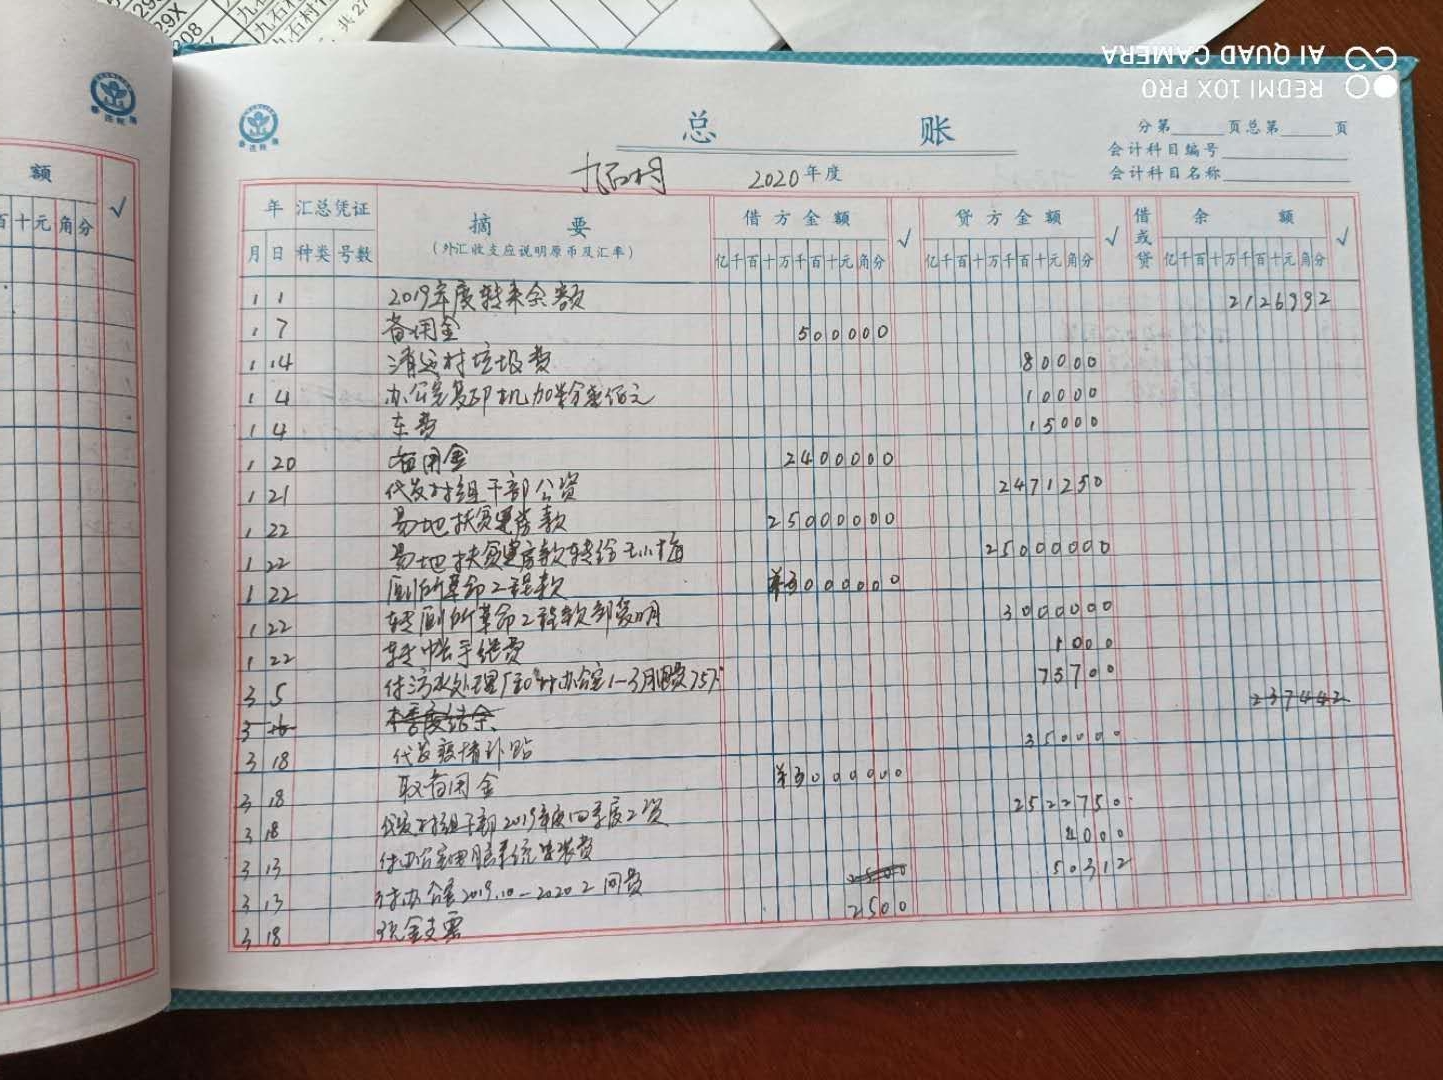 九石村
九石村
共27
额
√
百十元角分
总账
分第 页总第 页
会计科目编号
会计科目名称
九石村 2020年度
年 汇总凭证 摘要 借方金额 √ 贷方金额 √ 借或贷 余额 √
月 日 种类 号数 (外汇收支应说明原币及汇率) 亿千百十万千百十元角分 亿千百十万千百十元角分 亿千百十万千百十元角分
1 1 2019年度转来余额 2126992
1 7 备用金 500000
1 14 清运村垃圾费 80000
1 4 办公室复印机加粉壹佰元 10000
1 4 车费 15000
1 20 备用金 2400000
1 21 代发村组干部公资 2471250
1 22 易地扶贫建房款 25000000
1 22 易地扶贫建房款转给王小梅 25000000
1 22 厕所革命工程款 3000000
1 22 转厕所革命工程款 3000000
1 22 转帐手续费 1000
3 5 付污水处理厂和村办公室1-3月电费 75700
3 16 本季度结余 237442
3 18 代发疫情补贴 350000
3 18 取备用金 3000000
3 18 代发村组干部2019年度四季度工资 2522750
3 13 付办公室电脑系统安装费 4000
3 13 付办公室2019.10-2020.2网费 2500 50312
3 18 现金支票 2500
REDMI 10X PRO
AI QUAD CAMERA